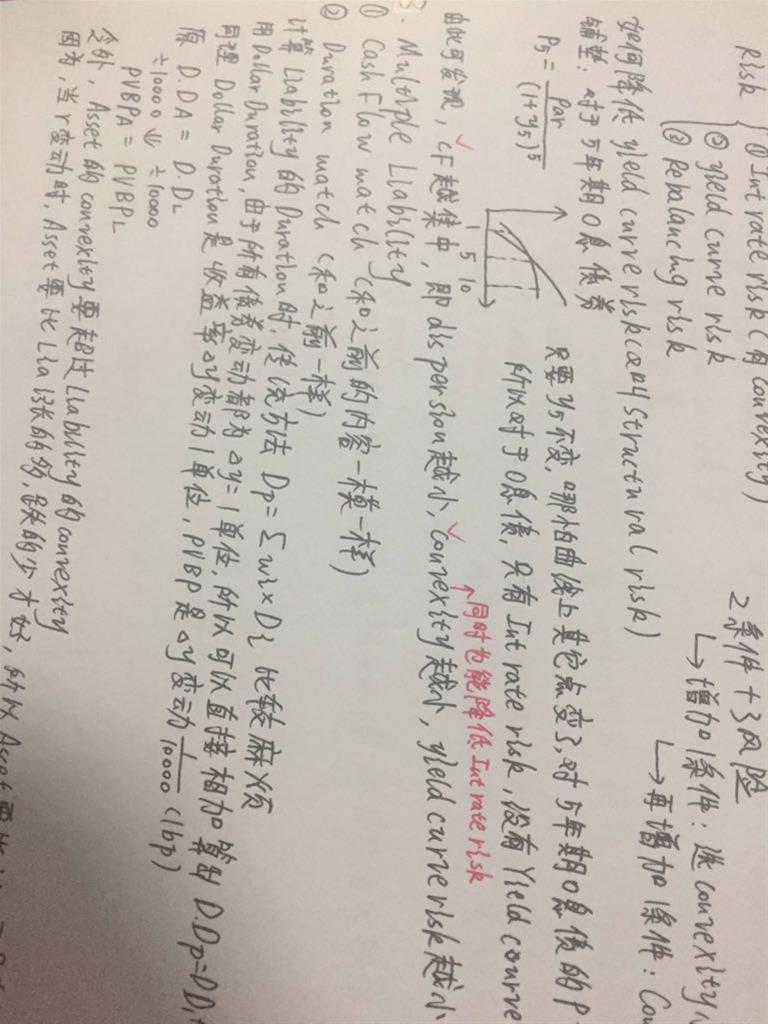 Risk { ① Int rate risk (有 convexity)
② yield curve risk
③ Rebalancing risk
2条件+3风险
↳增加1条件: 选 convexity
↳再增加1条件: Con
如何降低 yield curve risk (也叫 structural risk)
铺垫: 对于5年期0息债券
P5 = par / (1+y5)^5
1 5 10
只要y5不变, 哪怕曲线上其它点变了, 对5年期0息债的P
所以对于0息债, 只有 Int rate risk, 没有 Yield courve
↑同时也能降低 Int rate risk
由此可发现, CF越集中, 即 dispersion越小, convexity越小, yield curve risk越小
3. Multiple Liability
① Cash Flow match (和之前的内容一模一样)
② Duration match (和之前一样)
计算 Liability 的 Duration 时, 传统方法 Dp = Σ wi × Di 比较麻烦
用 Dollar Duration, 由于所有债券变动都为 Δy=1单位, 所以可以直接相加 算出 D.Dp = DD1+
同理 Dollar Duration 是收益率Δy变动1单位, PVBP是Δy变动 1/10000 (1bp)
原 D.DA = D.DL
÷10000 ⇓ ÷10000
PVBPA = PVBPL
另外, Asset 的 convexity 要超过 Liability 的 convexity
因为, 当r变动时, Asset 要比 Lia 涨的多, 跌的少才好, 所以 Asset